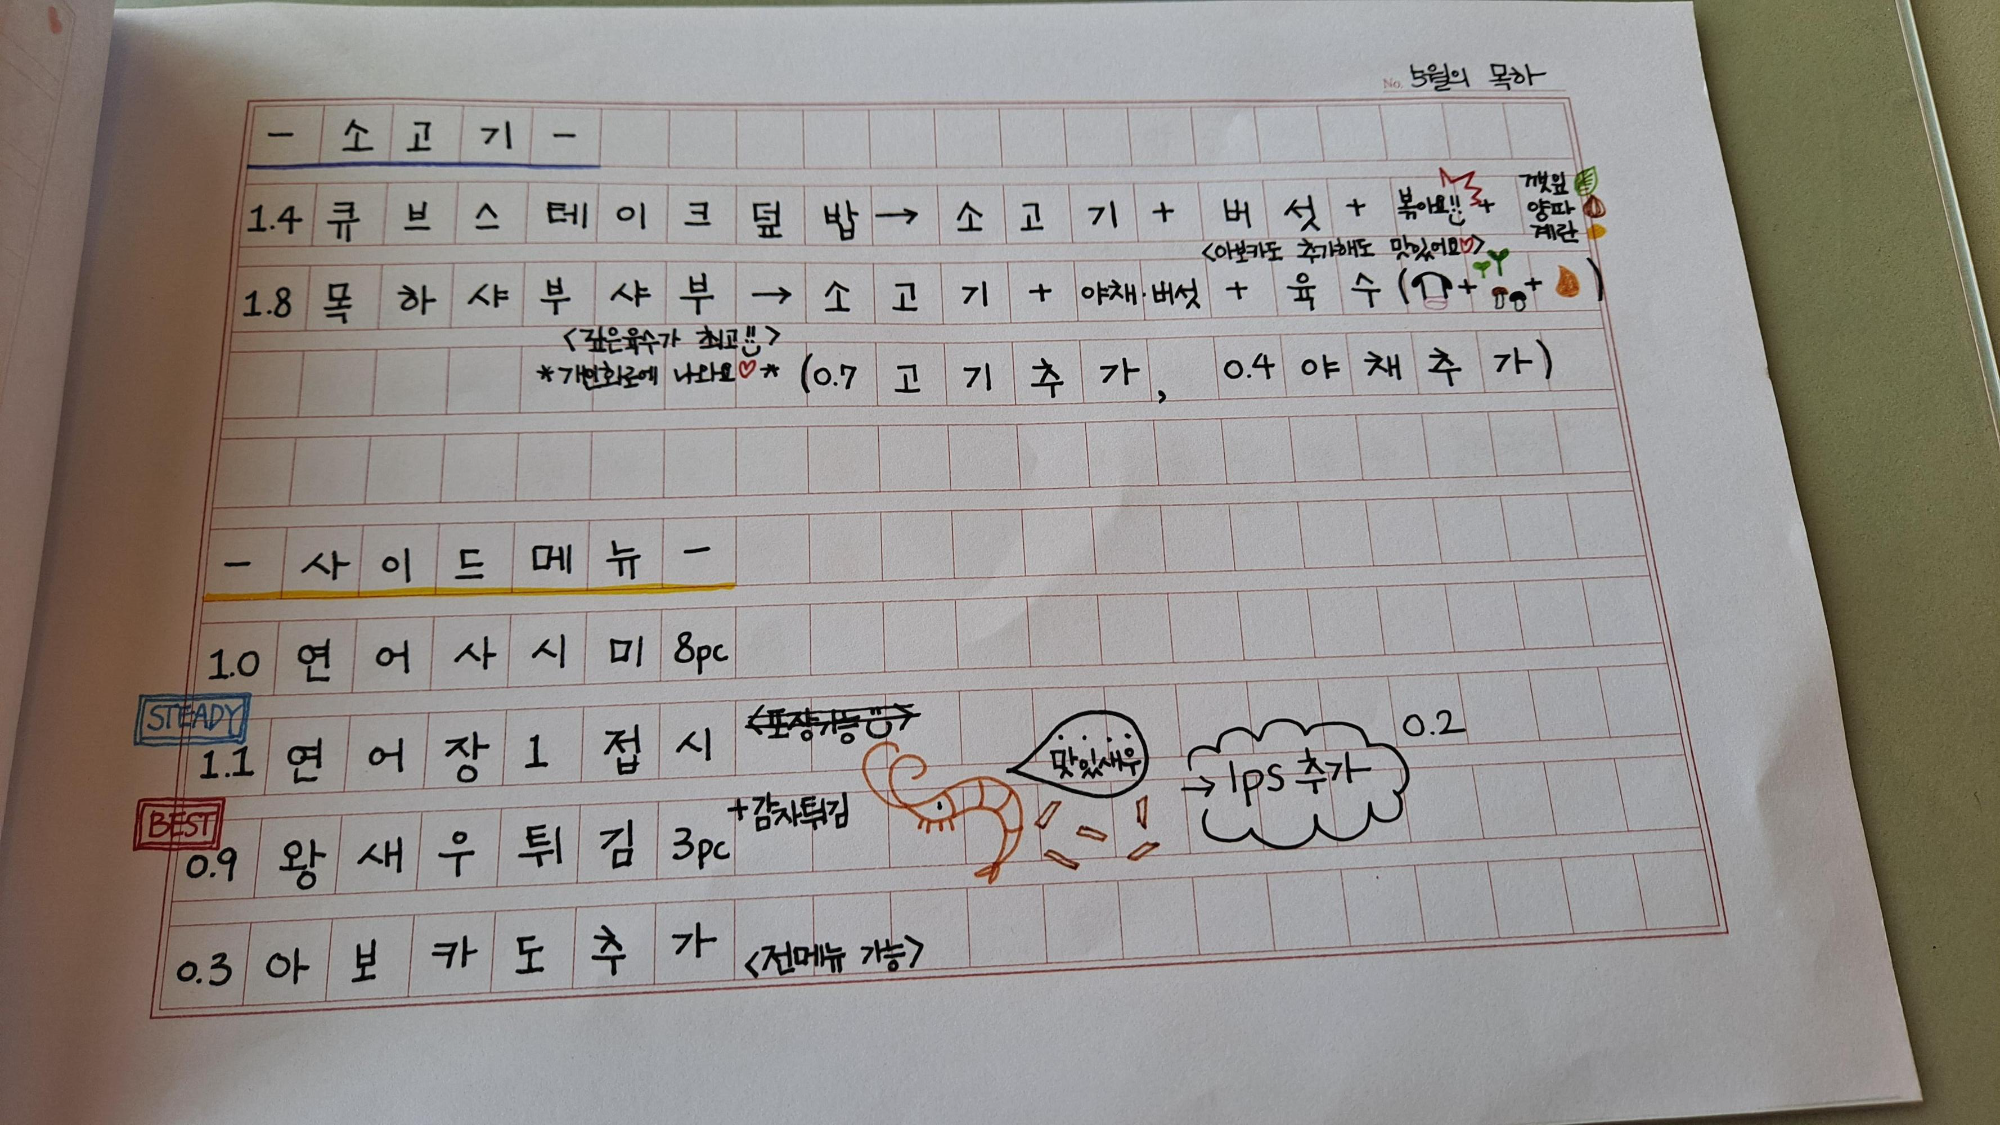 No. 5월의 목하
- 소고기 -
1.4 큐브스테이크덮밥 → 소고기 + 버섯 + 볶아요!! + 깻잎 양파 계란
<아보카도 추가해도 맛있어요♡>
1.8 목하샤부샤부 → 소고기 + 야채·버섯 + 육수 ( + + )
<깊은육수가 최고!!>
*개인화로에 나와요♡* (0.7 고기추가, 0.4 야채추가)
- 사이드메뉴 -
1.0 연어사시미 8pc
STEADY
1.1 연어장 1접시 <포장가능>
맛있새우
→ 1ps 추가 0.2
BEST
0.9 왕새우튀김 3pc +감자튀김
0.3 아보카도추가 <전메뉴 가능>